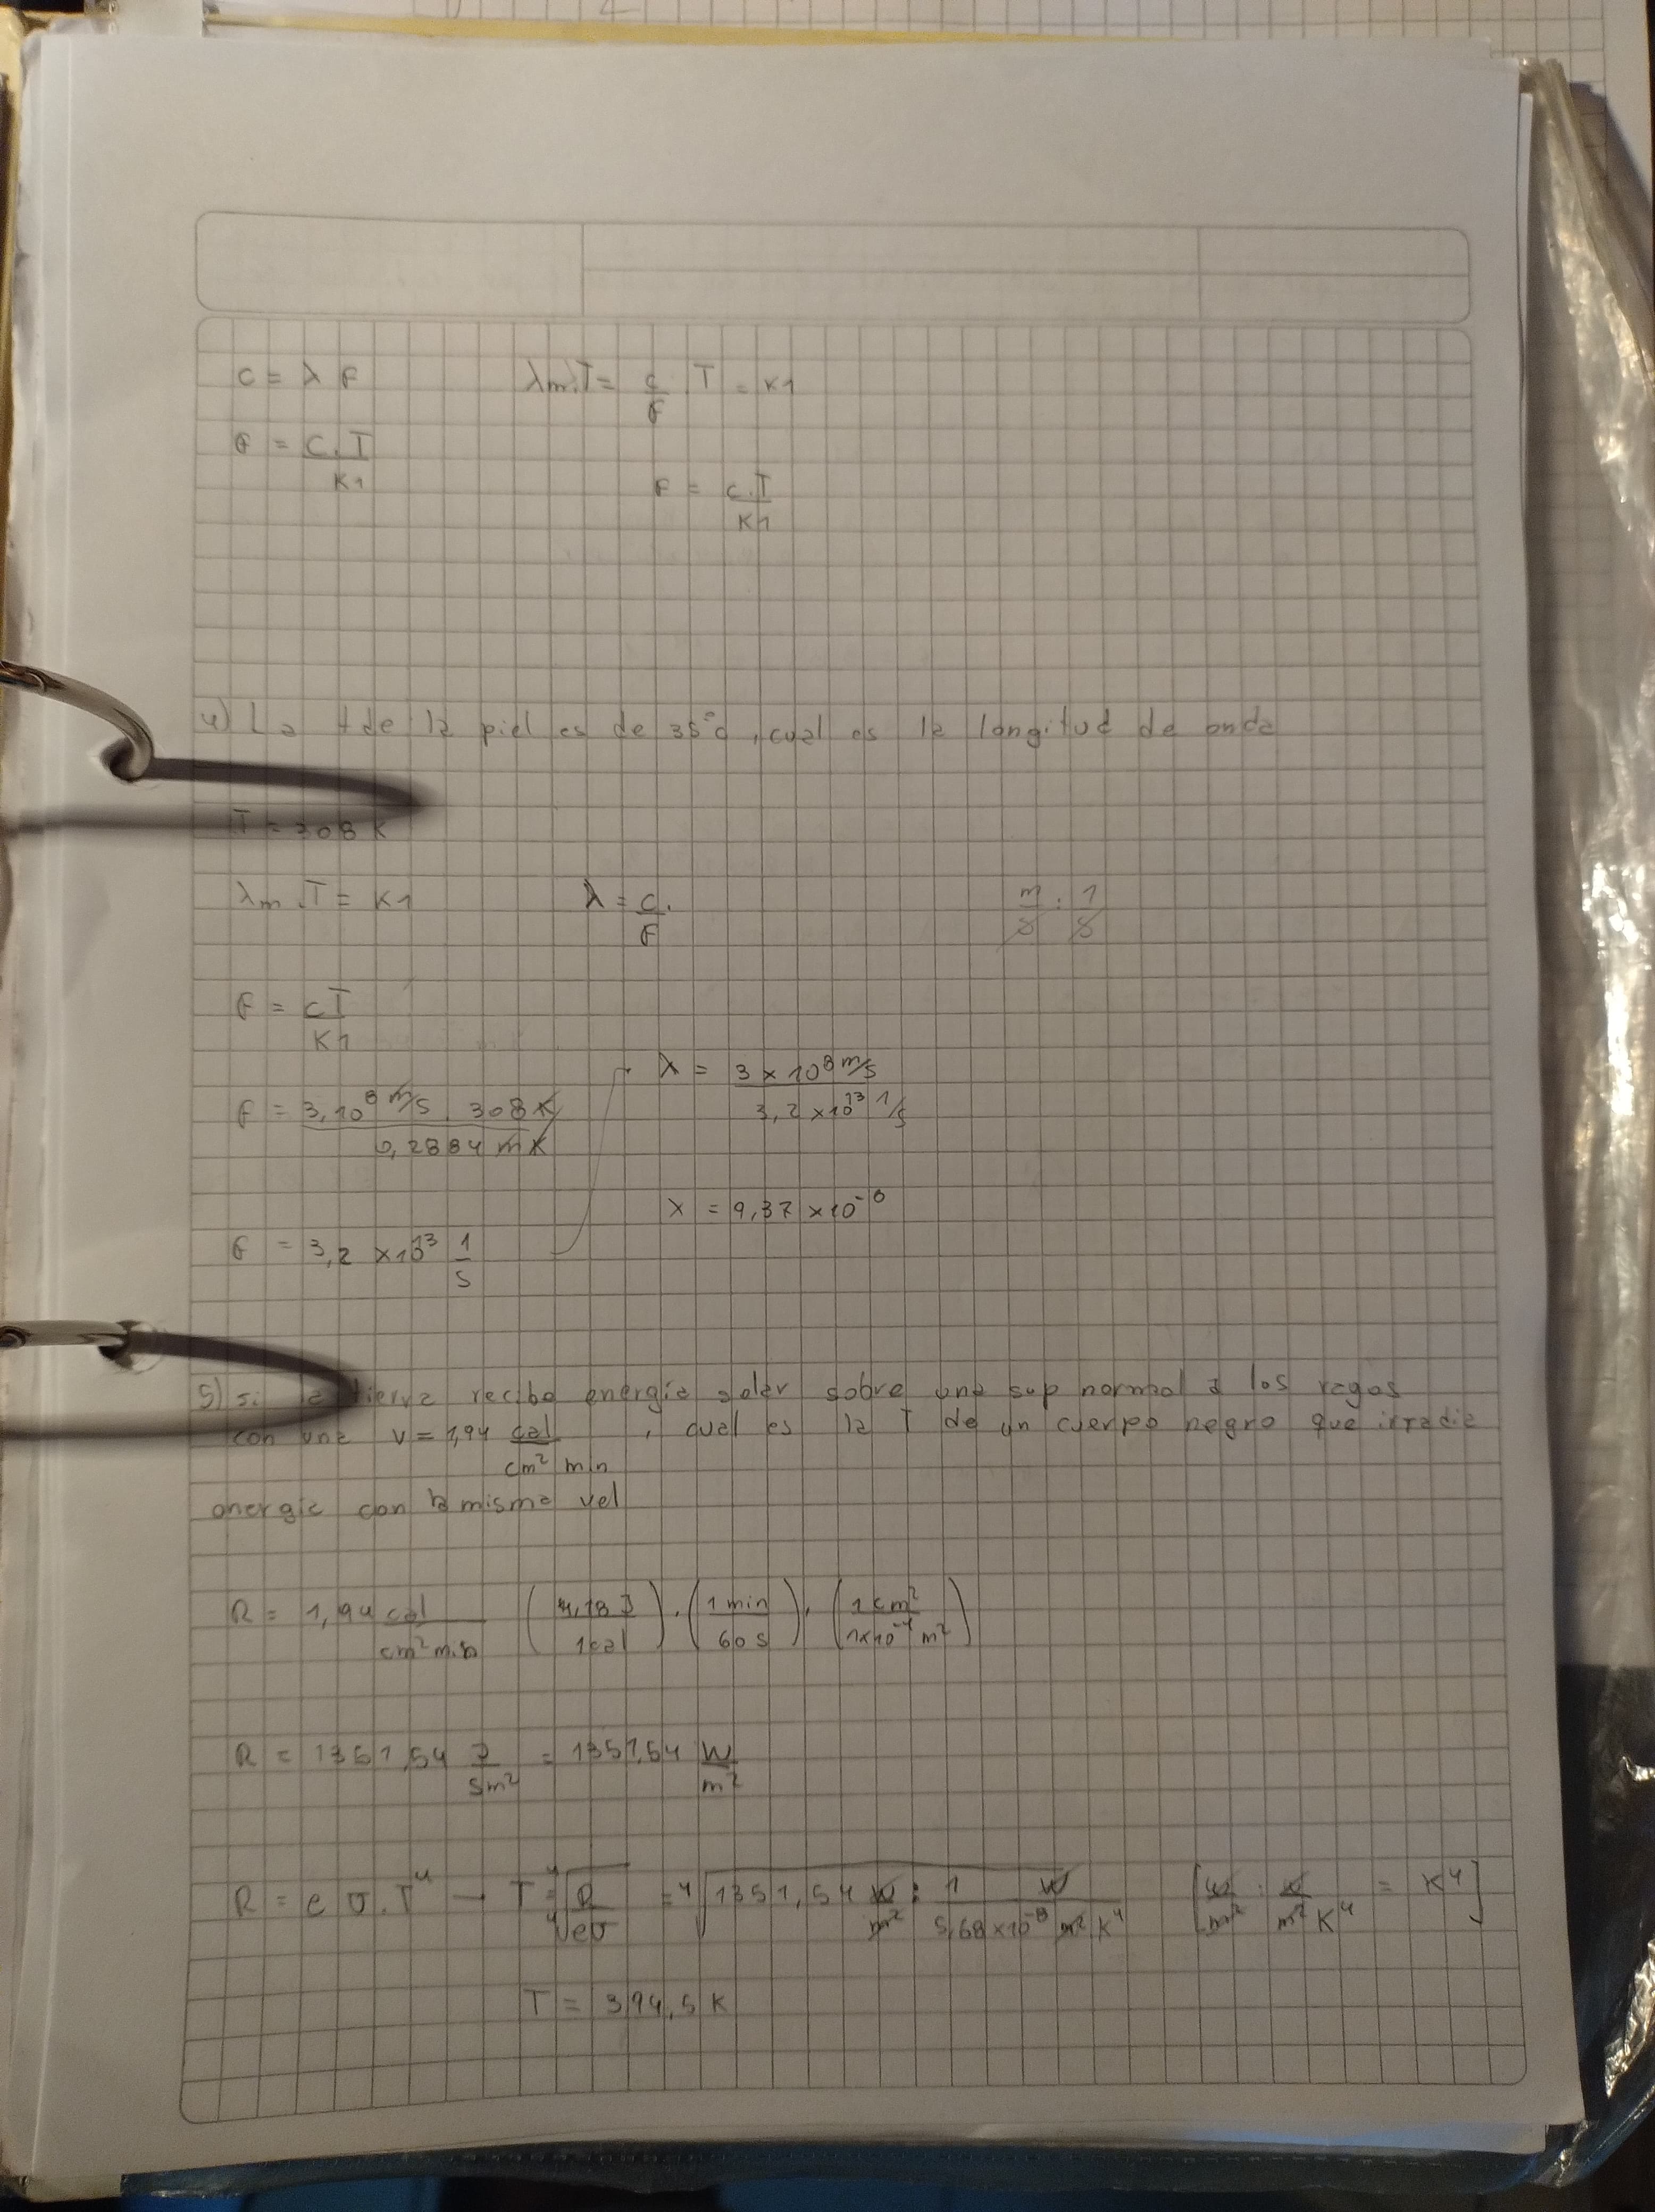 C = λ F    λm.T = c/F . T = K1
F = C.T/K1
F = c.T/K1
4) La t de la piel es de 35°c, cual es la longitud de onda
T = 308 K
λm.T = K1    λ = c/F.    m/s : 1/s
F = cT/K1
λ = 3 x 10⁸ m/s / 3,2 x10¹³ 1/s
F = 3.10⁸ m/s . 308 K / 0,2884 mK
λ = 9,37 x10⁻⁶
F = 3,2 x10¹³ 1/s
5) si la tierra recibe energia solar sobre una sup normal a los rayos
con una v = 1,94 cal/cm² min, cual es la T de un cuerpo negro que irradia
energia con la misma vel
R = 1,94 cal/cm² min (4,18 J/1cal) . (1 min/60 s) . (1 cm²/1x10⁻⁴ m²)
R = 1351,54 J/sm² = 1351,54 W/m²
R = e σ.T⁴ → T = ⁴√R/⁴√eσ = ⁴√1351,54 W/m² : 1/5,68 x10⁻⁸ W/m² K⁴    [W/m² . W/m² K⁴ = K⁴]
T = 394,5 K